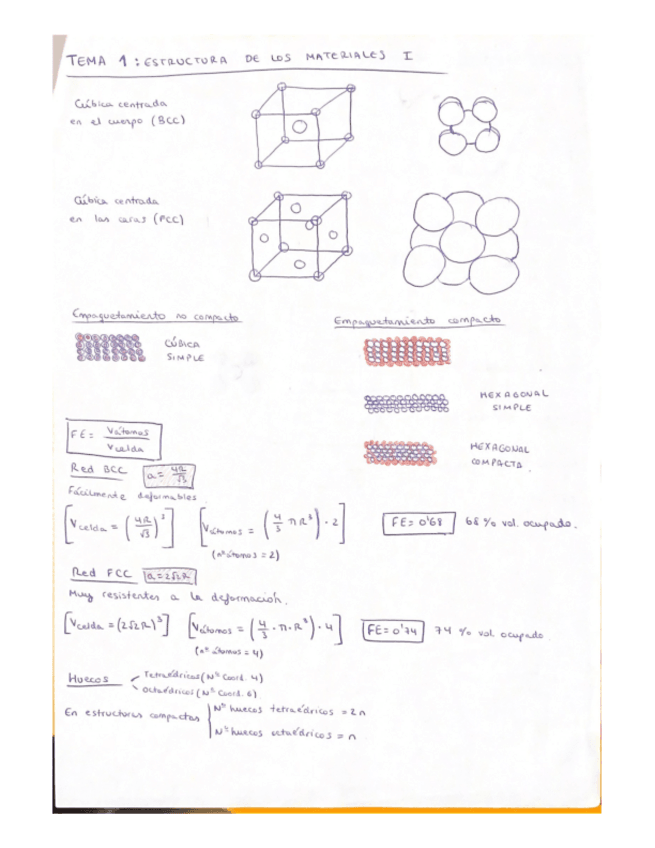 TEMA 1: ESTRUCTURA DE LOS MATERIALES I
Cúbica centrada
en el cuerpo (BCC)
Cúbica centrada
en las caras (FCC)
Empaquetamiento no compacto
Empaquetamiento compacto
CÚBICA
SIMPLE
HEXAGONAL
SIMPLE
HEXAGONAL
COMPACTA
FE = Vátomos / Vcelda
Red BCC a = 4R/√3
Fácilmente deformables
[Vcelda = (4R/√3)³] [Vátomos = (4/3 πR³) · 2] FE = 0'68 68 % vol. ocupado.
(nº átomos = 2)
Red FCC a = 2√2R
Muy resistentes a la deformación.
[Vcelda = (2√2R)³] [Vátomos = (4/3 · π · R³) · 4] FE = 0'74 74 % vol ocupado
(nº átomos = 4)
Huecos Tetraédricos (Nº Coord. 4)
octaédricos (Nº Coord. 6)
En estructuras compactas Nº huecos tetraédricos = 2n
Nº huecos octaédricos = n